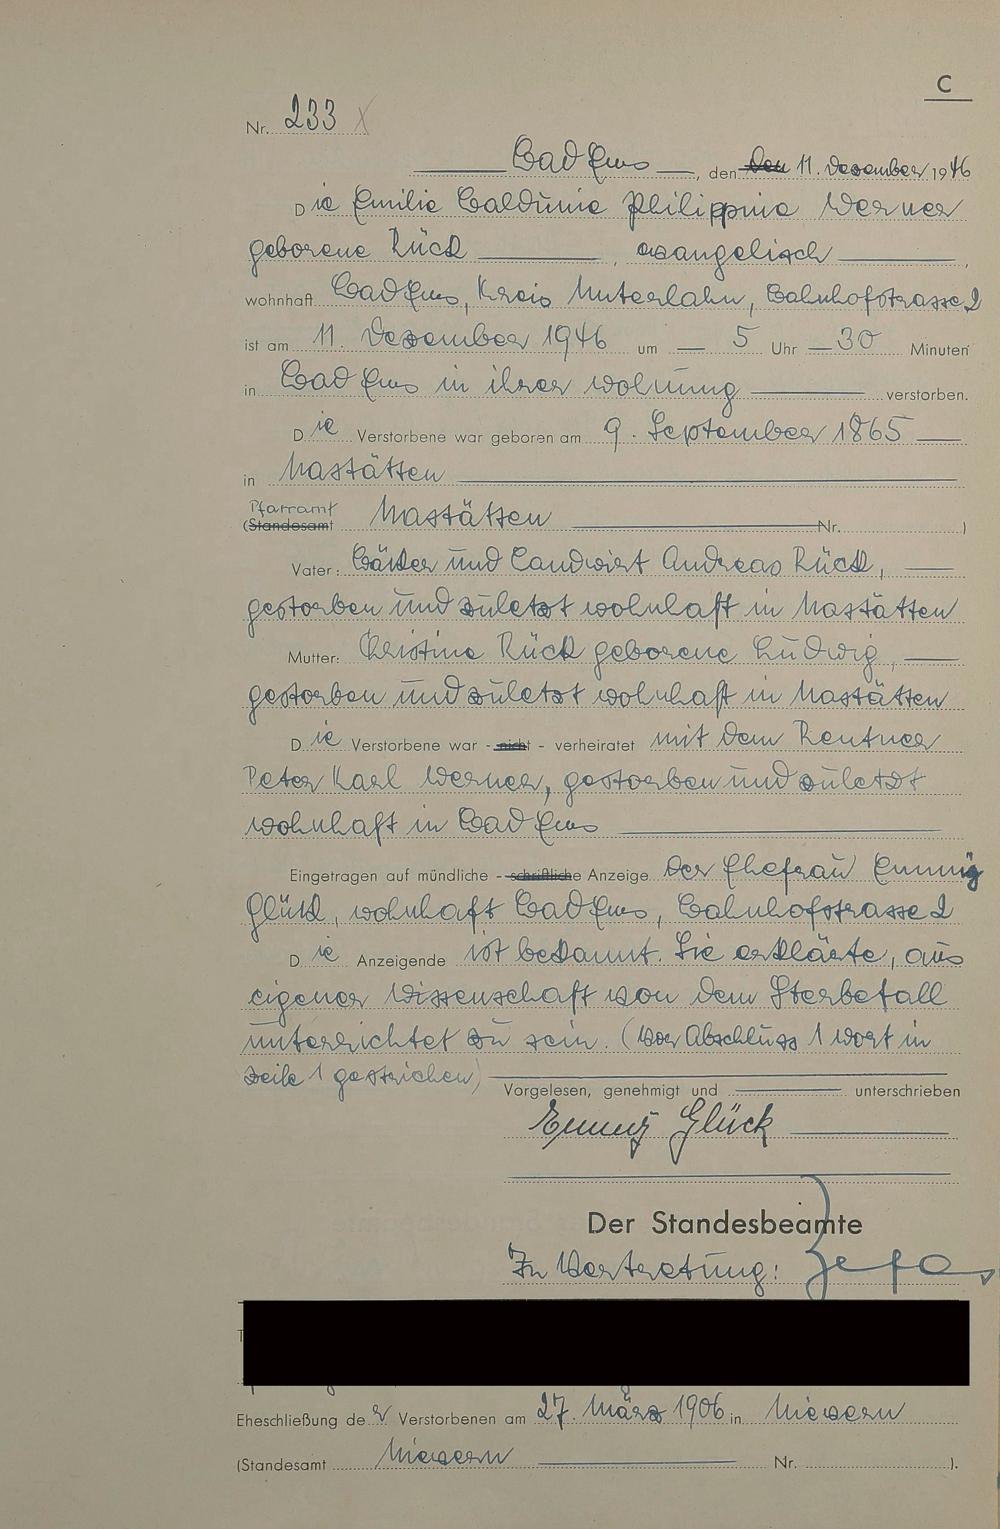 C
Nr. 233
Bad Ems, den den 11. Dezember 1946
Die Emilie Baldunie Philippine Werner
geborene Rück, evangelisch,
wohnhaft Bad Ems, Kreis Unterlahn, Bahnhofstrasse 2
ist am 11. Dezember 1946 um 5 Uhr 30 Minuten
in Bad Ems in ihrer Wohnung verstorben.
Die Verstorbene war geboren am 9. September 1865
in Nastätten
Pfarramt
(Standesamt Nastätten Nr. )
Vater: Bäcker und Landwirt Andreas Rück,
gestorben und zuletzt wohnhaft in Nastätten
Mutter: Christine Rück geborene Ludwig,
gestorben und zuletzt wohnhaft in Nastätten
Die Verstorbene war - nicht - verheiratet mit dem Rentner
Peter Karl Werner, gestorben und zuletzt
wohnhaft in Bad Ems
Eingetragen auf mündliche - schriftliche Anzeige der Ehefrau Emmy
Glück, wohnhaft Bad Ems, Bahnhofstrasse 2
Die Anzeigende ist bekannt. Sie erklärte, aus
eigener Wissenschaft von dem Sterbefall
unterrichtet zu sein. (Vor Abschluss 1 Wort in
Zeile 1 gestrichen)
Vorgelesen, genehmigt und unterschrieben
Emmy Glück
Der Standesbeamte
In Vertretung:
Eheschließung der Verstorbenen am 27. März 1906 in Nievern
(Standesamt Nievern Nr. ).